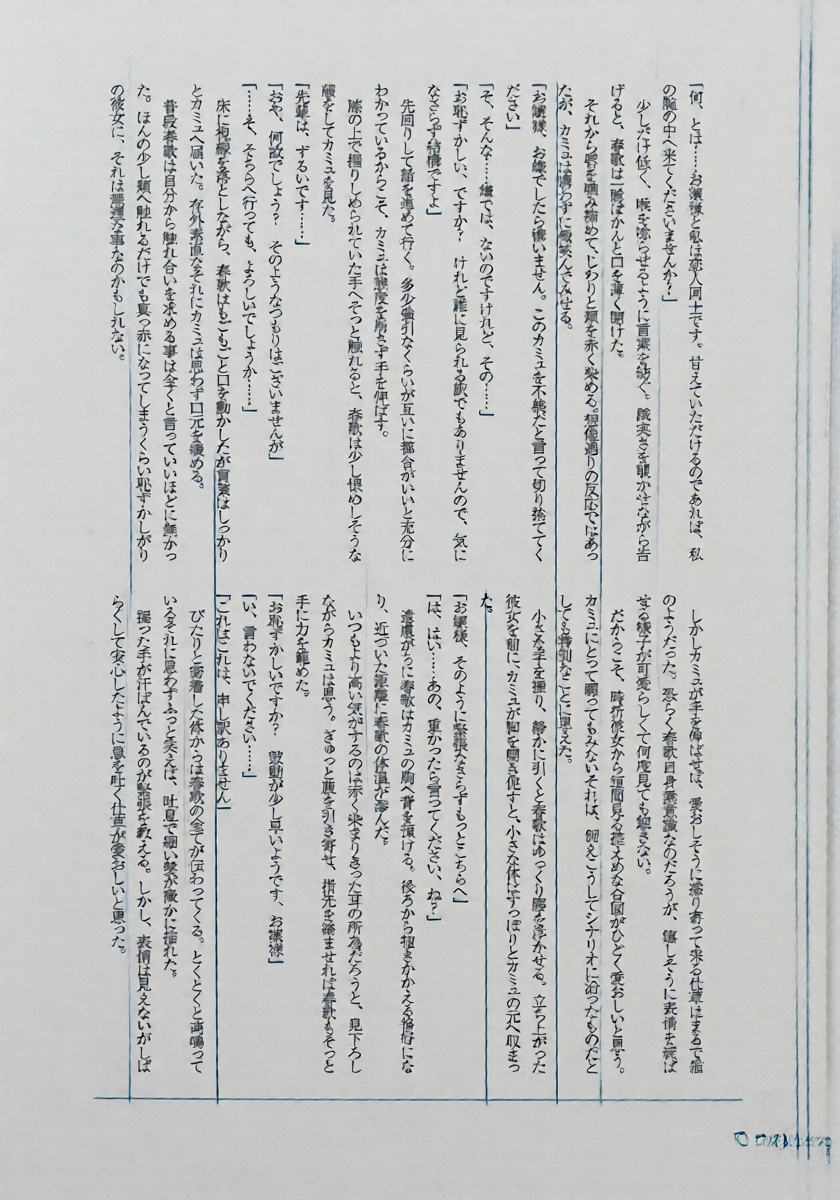 「何、とは……お嬢様と私は恋人同士です。甘えていただけるのであれば、私
の腕の中へ来てくださいませんか？」
少しだけ低く、喉を滲らせるように言葉を紡ぐ。誠実さを覗かせながら告
げると、春歌は一瞬ぽかんと口を薄く開けた。
それから唇を噛み締めて、じわりと頬を赤く染める。想像通りの反応ではあっ
たが、カミュは構わずに微笑んでみせる。
「お嬢様、お嫌でしたら構いません。このカミュを不躾だと言って切り捨ててく
ださい」
「そ、そんな……嫌では、ないのですけれど、その……」
「お恥ずかしい、ですか？　けれど誰に見られる訳でもありませんので、気に
なさらず結構ですよ」
先回りして話を進めて行く。多少強引なくらいが互いに都合がいいと充分に
わかっているからこそ、カミュは態度を崩さず手を伸ばす。
膝の上で握りしめられていた手へそっと触れると、春歌は少し恨めしそうな
顔をしてカミュを見た。
「先輩は、ずるいです……」
「おや、何故でしょう？　そのようなつもりはございませんが」
「……そ、そちらへ行っても、よろしいでしょうか……」
床に視線を落としながら、春歌はもごもごと口を動かしたが言葉はしっかり
とカミュへ届いた。存外素直なそれにカミュは思わず口元を緩める。
普段春歌は自分から触れ合いを求める事は全くと言っていいほどに無かっ
た。ほんの少し頬へ触れるだけでも真っ赤になってしまうくらい恥ずかしがり
の彼女に、それは無理な事なのかもしれない。
しかしカミュが手を伸ばせば、愛おしそうに擦り寄って来る仕草はまるで猫
のようだった。恐らく春歌自身無意識なのだろうが、嬉しそうに表情を綻ば
せる様子が可愛らしくて何度見ても飽きない。
だからこそ、時折彼女から垣間見る控えめな合図がひどく愛おしいと思う。
カミュにとって願ってもみないそれは、例えこうしてシナリオに沿ったものだと
しても特別なことに思えた。
小さな手を握り、静かに引くと春歌はゆっくり腰を浮かせる。立ち上がった
彼女を前に、カミュが胸を開き促すと、小さな体はすっぽりとカミュの元へ収まっ
た。
「お嬢様、そのように緊張なさらずもっとこちらへ」
「は、はい……あの、重かったら言ってください、ね？」
遠慮がちに春歌はカミュの胸へ背を預ける。後ろから抱きかかえる格好にな
り、近づいた距離に春歌の体温が滲んだ。
いつもより高い気がするのは赤く染まりきった耳の所為だろうと、見下ろし
ながらカミュは思う。ぎゅっと腰を引き寄せ、指先を絡ませれば春歌もそっと
手に力を籠めた。
「お恥ずかしいですか？　鼓動が少し早いようです、お嬢様」
「い、言わないでください……」
「これはこれは、申し訳ありません」
ぴたりと密着した体からは春歌の全てが伝わってくる。とくとくと高鳴って
いるそれに思わずふっと笑えば、吐息で細い髪が微かに揺れた。
握った手が汗ばんでいるのが緊張を教える。しかし、表情は見えないがしば
らくして安心したように息を吐く仕草が愛おしいと思った。